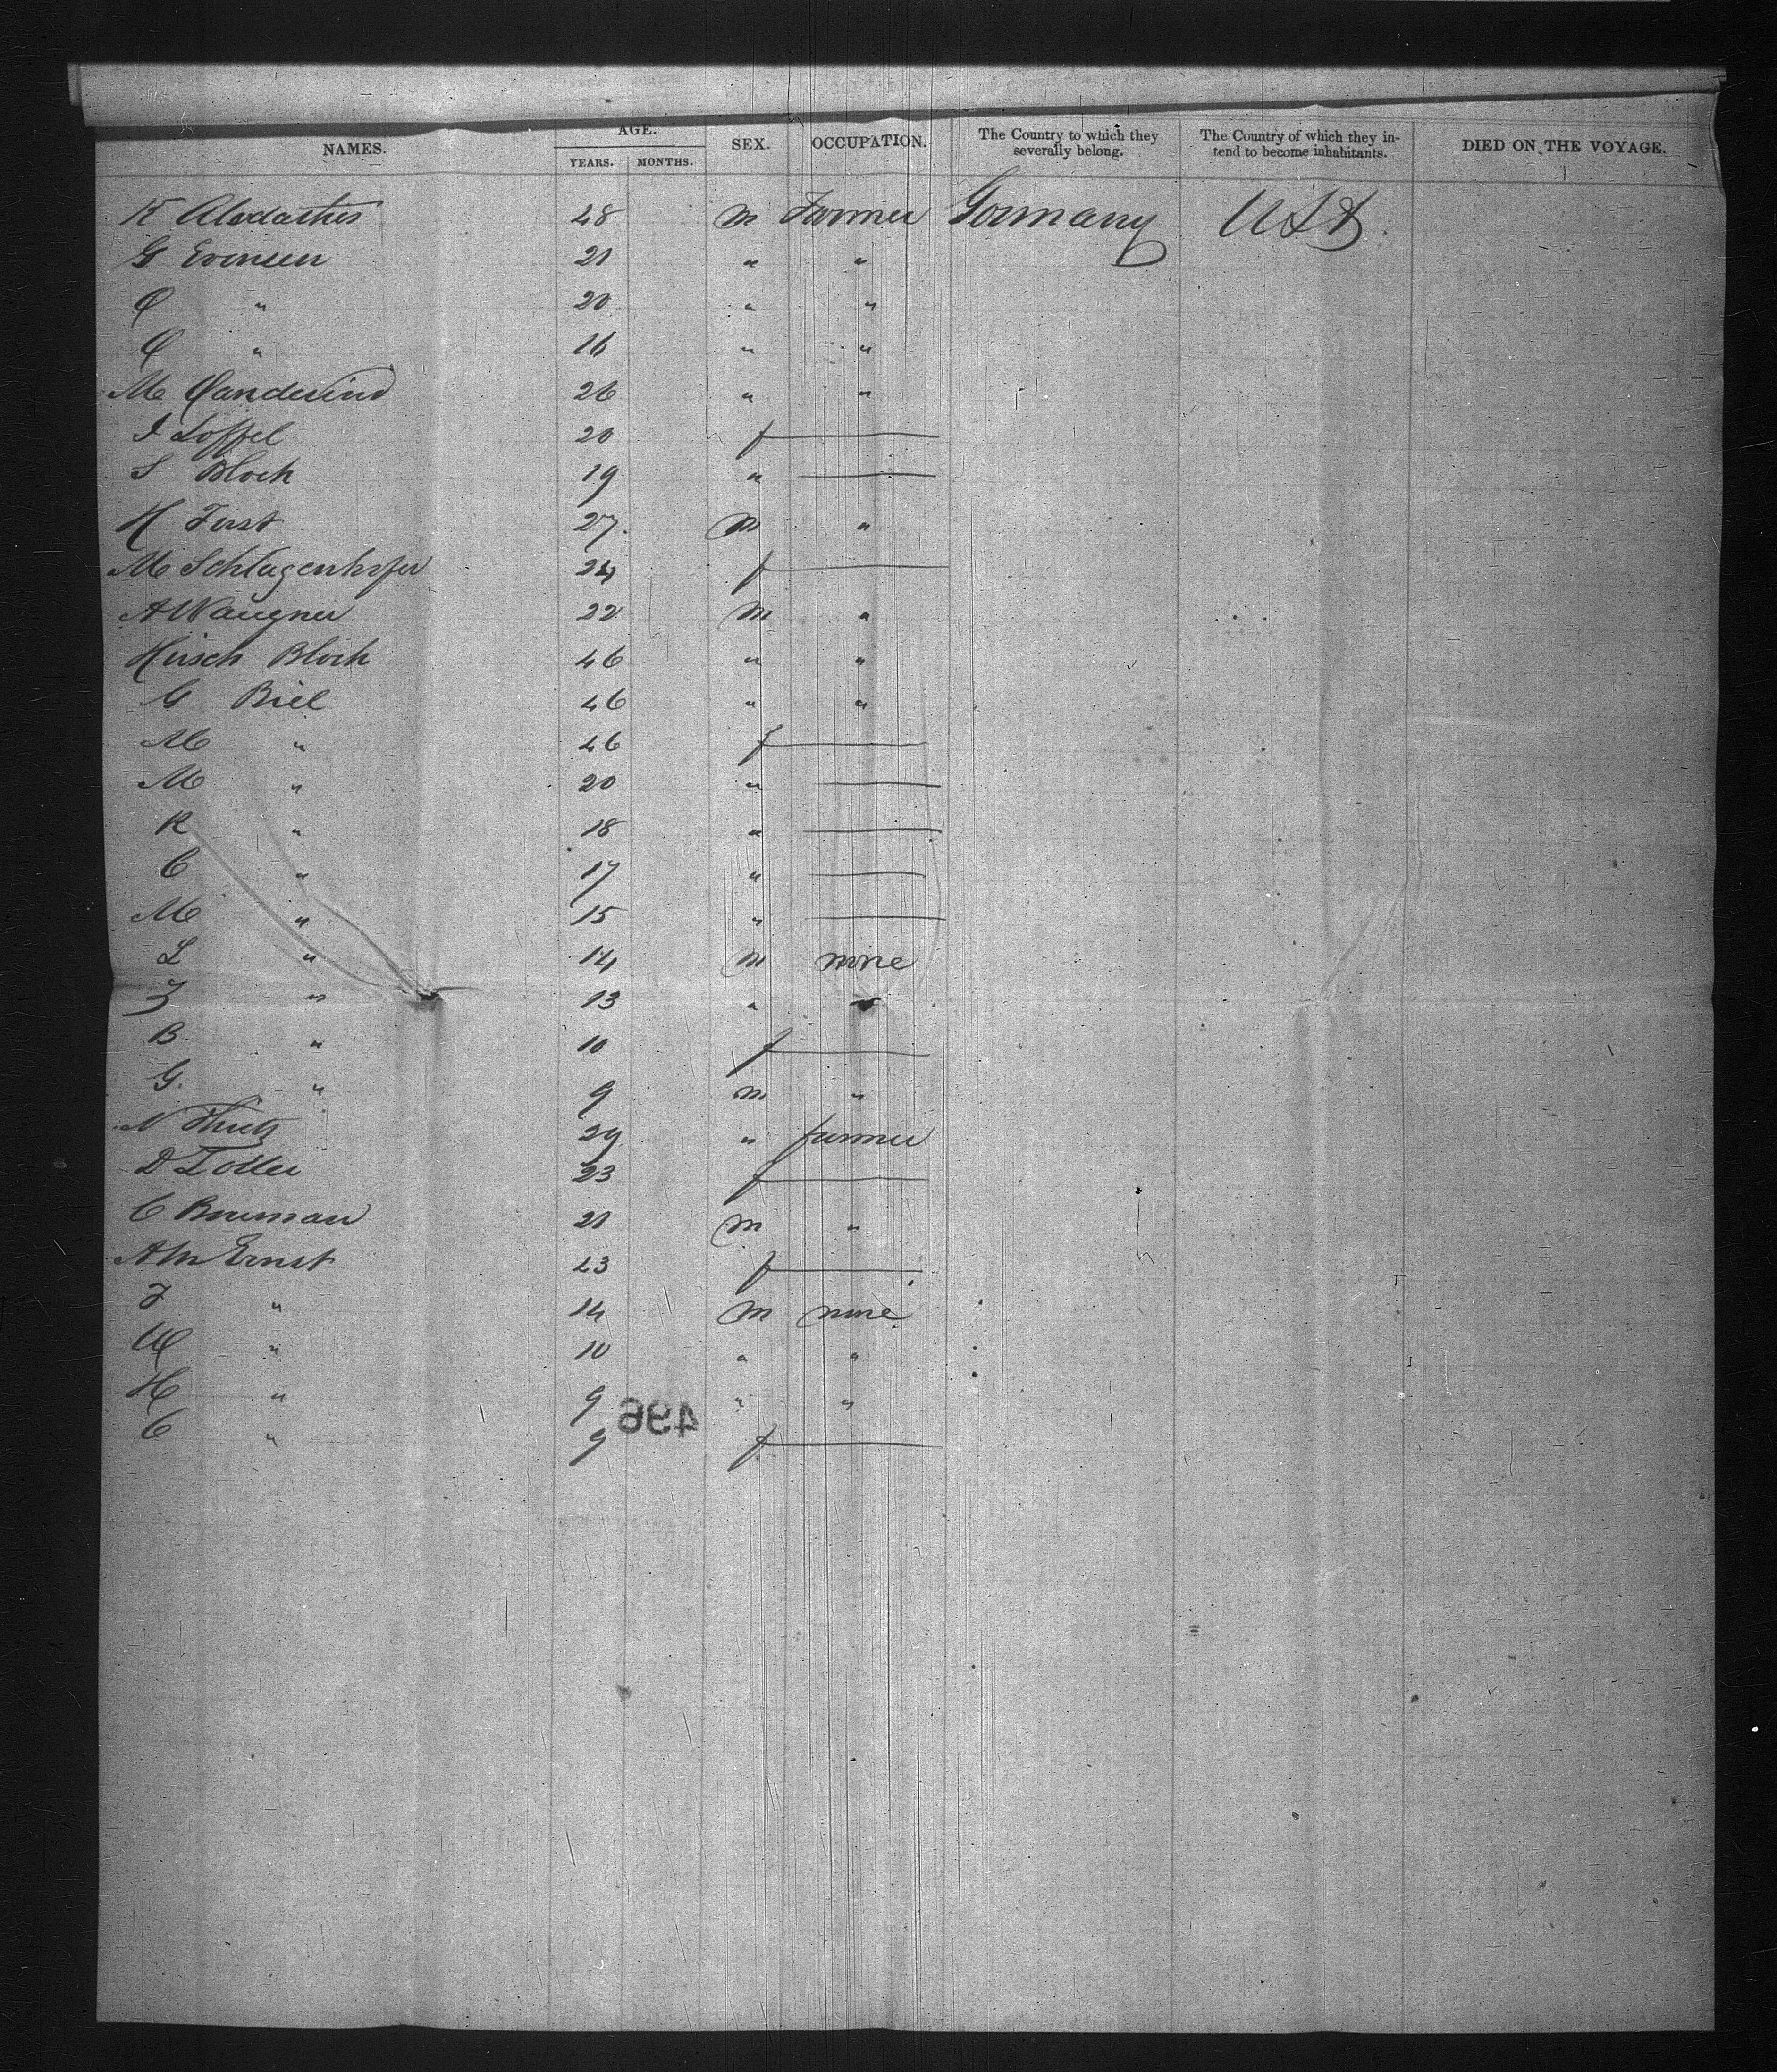 NAMES. AGE. YEARS. MONTHS. SEX. OCCUPATION. The Country to which they severally belong. The Country of which they intend to become inhabitants. DIED ON THE VOYAGE.
K 48 m Farmer Germany USA
G Evensen 21 " "
" 20 " "
" 16 " "
M 26 " "
I Loffel 20 f —
S Bloch 19 " —
H Fust 27 m "
M Schlagenhofer 24 f —
A Waugner 22 m "
Hirsch Bloch 46 " "
G Biel 46 " "
M " 46 f —
M " 20 " —
K " 18 " —
C " 17 " —
M " 15 " —
L " 14 m none
" 13 " "
B " 10 f —
G. " 9 m "
N 29 " farmer
D 23 f —
C Bowman 21 m "
AM Ernst 43 f —
F " 14 m none
" 10 " "
H " 9 " "
C " 9 f —
496